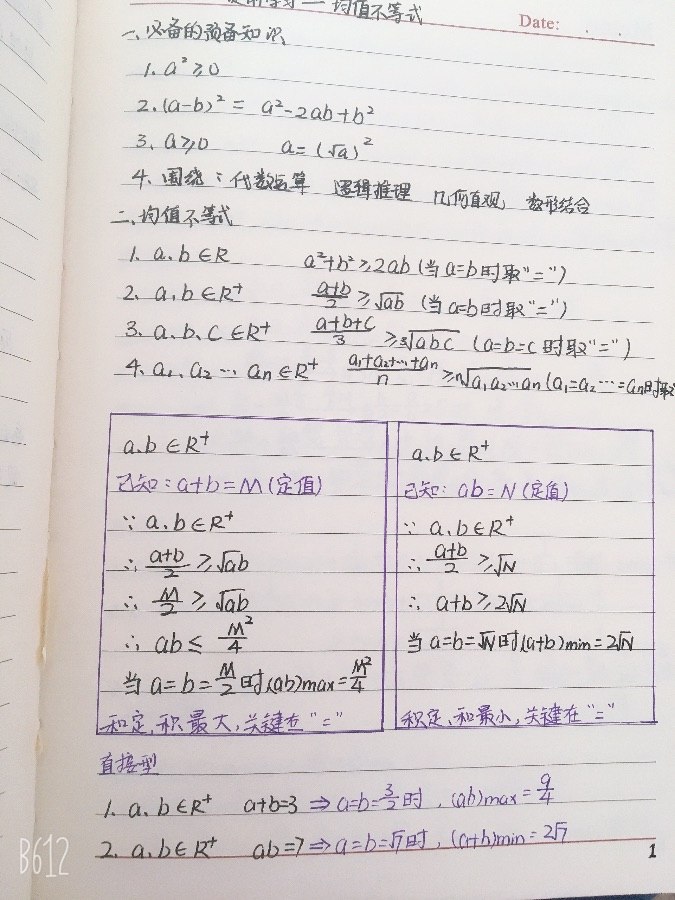 均值不等式
Date:
一、必备的预备知识
1. a² ≥ 0
2. (a-b)² = a²-2ab+b²
3. a≥0 a=(√a)²
4. 围绕：代数运算 逻辑推理 几何直观、数形结合
二、均值不等式
1. a.b∈R a²+b²≥2ab (当a=b时取"=")
2. a,b∈R⁺ (a+b)/2 ≥ √ab (当a=b时取"=")
3. a、b、c∈R⁺ (a+b+c)/3 ≥ ³√abc (a=b=c时取"=")
4. a₁、a₂…an∈R⁺ (a₁+a₂+…+an)/n ≥ ⁿ√a₁a₂…an (a₁=a₂…=an时取
a.b∈R⁺
已知：a+b=M(定值)
∵ a、b∈R⁺
∴ (a+b)/2 ≥ √ab
∴ M/2 ≥ √ab
∴ ab ≤ M²/4
当 a=b=M/2 时,(ab)max=M²/4
和定,积最大,关键在"="
a.b∈R⁺
已知：ab=N(定值)
∵ a、b∈R⁺
∴ (a+b)/2 ≥ √N
∴ a+b≥2√N
当 a=b=√N时,(a+b)min=2√N
积定、和最小,关键在"="
直接型
1. a、b∈R⁺ a+b=3 ⇒ a=b=3/2时，(ab)max=9/4
2. a、b∈R⁺ ab=7 ⇒ a=b=√7时，(a+b)min=2√7
1
B612